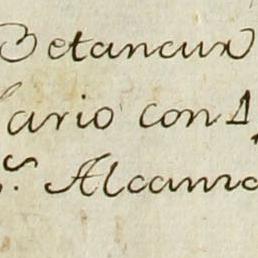 Betancur
lario con 1
s. Alcanza